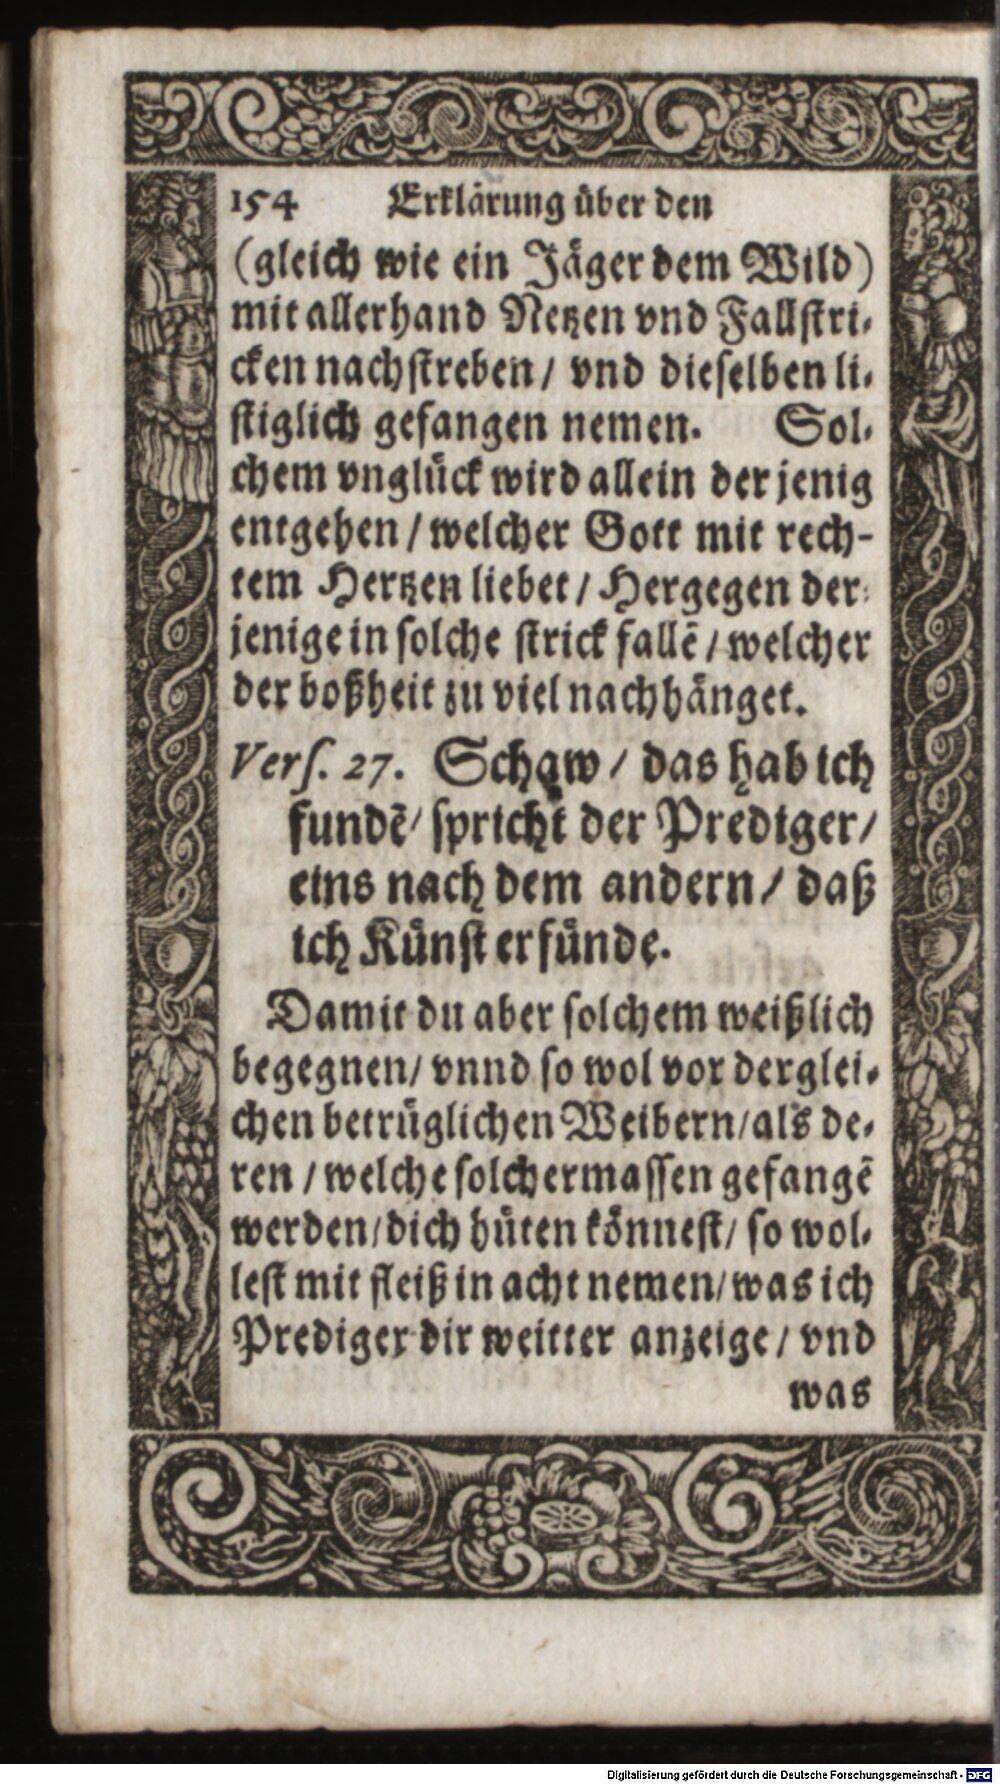 154 Erklärung über den
(gleich wie ein Jäger dem Wild)
mit allerhand Netzen vnd Fallstri-
cken nachstreben / vnd dieselben li-
stiglich gefangen nemen. Sol-
chem vnglück wird allein der jenig
entgehen / welcher Gott mit rech-
tem Hertzen liebet / Hergegen der-
jenige in solche strick fallẽ / welcher
der boßheit zu viel nachhänget.
Vers. 27. Schaw / das hab ich
fundẽ / spricht der Prediger /
eins nach dem andern / daß
ich Künst erfünde.
Damit du aber solchem weißlich
begegnen / vnnd so wol vor derglei-
chen betrüglichen Weibern / als de-
ren / welche solchermassen gefangẽ
werden / dich hüten könnest / so wol-
lest mit fleiß in acht nemen / was ich
Prediger dir weitter anzeige / vnd
was
Digitalisierung gefördert durch die Deutsche Forschungsgemeinschaft - DFG